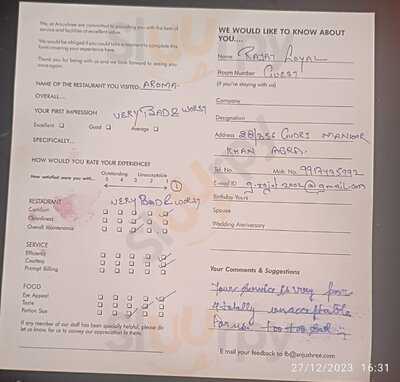 We, at Anjushree are committed to providing you with the best of
service and facilities of excellent value.
We would be obliged if you could take a moment to complete this
form covering your experience here.
Thank you for being with us and we look forward to seeing you
once again.
NAME OF THE RESTAURANT YOU VISITED: AROMA
OVERALL...
YOUR FIRST IMPRESSION VERY BAD & WORST
Excellent Good Average
SPECIFICALLY...
HOW WOULD YOU RATE YOUR EXPERIENCE?
How satisfied were you with... Outstanding Unacceptable
5 4 3 2 1 1
RESTAURANT VERY BAD & WORST
Comfort
Cleanliness
Overall Maintenance
SERVICE
Efficiency
Courtesy
Prompt Billing
FOOD
Eye Appeal
Taste
Portion Size
If any member of our staff has been specially helpful, please do
let us know, for us to convey our appreciation to them.
WE WOULD LIKE TO KNOW ABOUT
YOU....
Name RAJAT GOYAL
Room Number GUEST
(if you're staying with us)
Company
Designation
Address 28/256 GUDRI MANSOOR
KHAN AGRA
Tel. No. Mob. No.
E-mail ID
Birthday Yours
Spouse
Wedding Anniversary
Your Comments & Suggestions
Your service is very poor
& totally unacceptable
For us too too bad
E mail your feedback to fb@anjushree.com
27/12/2023 16:31